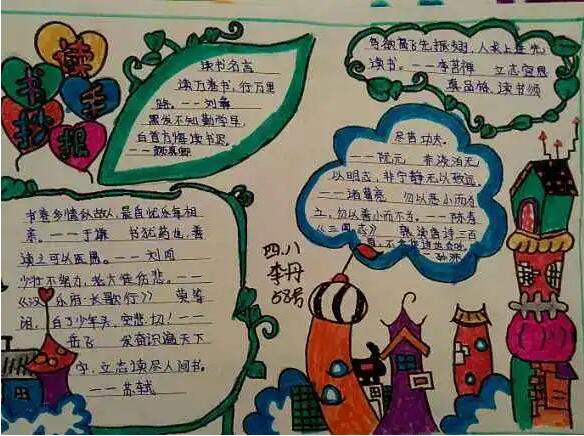 读书手抄报
读书名言
读万卷书,行万里
路。--刘彝
黑发不知勤学早,
白首方悔读书迟。
--颜真卿
鸟欲高飞先振翅,人求上进先
读书。--李苦禅 立志宜思
真品格,读书须
尽苦功夫。
--阮元 非淡泊无
以明志,非宁静无以致远。
--诸葛亮 勿以恶小而为
之,勿以善小而不为。--陈寿
《三国志》 熟读唐诗三百
孙洙
书卷多情似故人,晨昏忧乐每相
亲。--于谦 书犹药也,善
读之可以医愚。--刘向
少壮不努力,老大徒伤悲。--
《汉乐府·长歌行》 莫等
闲,白了少年头,空悲切!--
岳飞 发奋识遍天下
字,立志读尽人间书。
--苏轼
四.八
李丹
58号